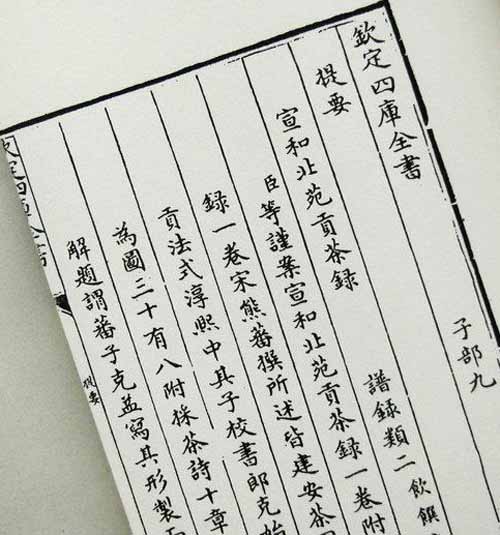 欽定四庫全書 子部九
提要
宣和北苑貢茶録 譜録類二飲饌
臣等謹案宣和北苑貢茶録一卷附
録一卷宋熊蕃撰所述皆建安茶園
貢法式淳熙中其子校書郎克始
為圖三十有八附採茶詩十章
解題謂蕃子克益寫其形製
提要